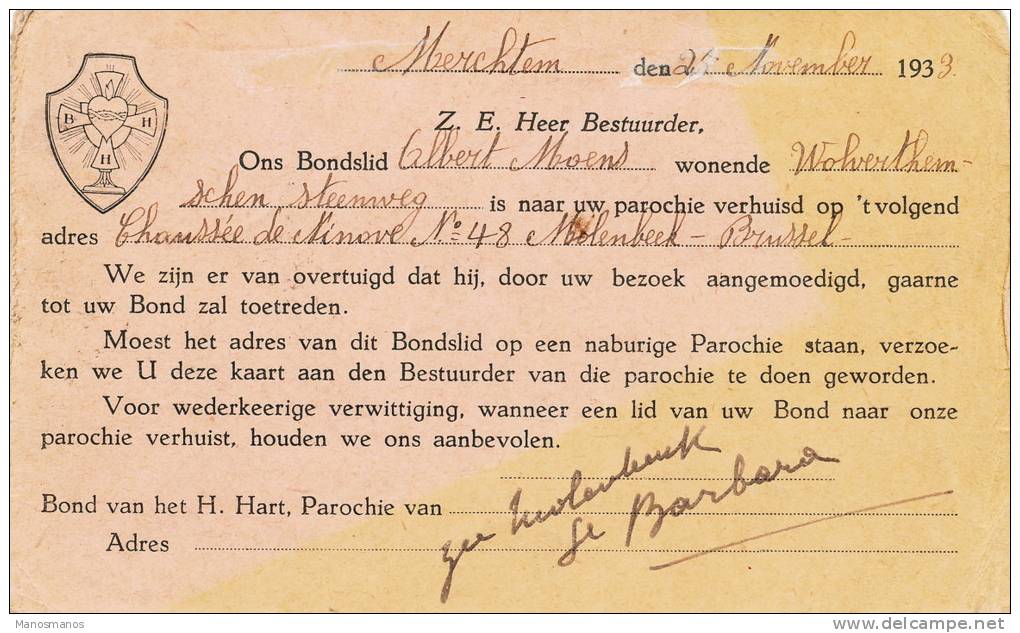 Merchtem den 21 November 1933.
B H
H
Z. E. Heer Bestuurder,
Ons Bondslid Albert Moens wonende Wolverthem-
schen steenweg is naar uw parochie verhuisd op 't volgend
adres Chaussée de Ninove No 48 Molenbeek - Brussel -
We zijn er van overtuigd dat hij, door uw bezoek aangemoedigd, gaarne
tot uw Bond zal toetreden.
Moest het adres van dit Bondslid op een naburige Parochie staan, verzoe-
ken we U deze kaart aan den Bestuurder van die parochie te doen geworden.
Voor wederkeerige verwittiging, wanneer een lid van uw Bond naar onze
parochie verhuist, houden we ons aanbevolen.
Molenbeek
Bond van het H. Hart, Parochie van
Se Barbara
Adres
Manosmanos
delcampe.net